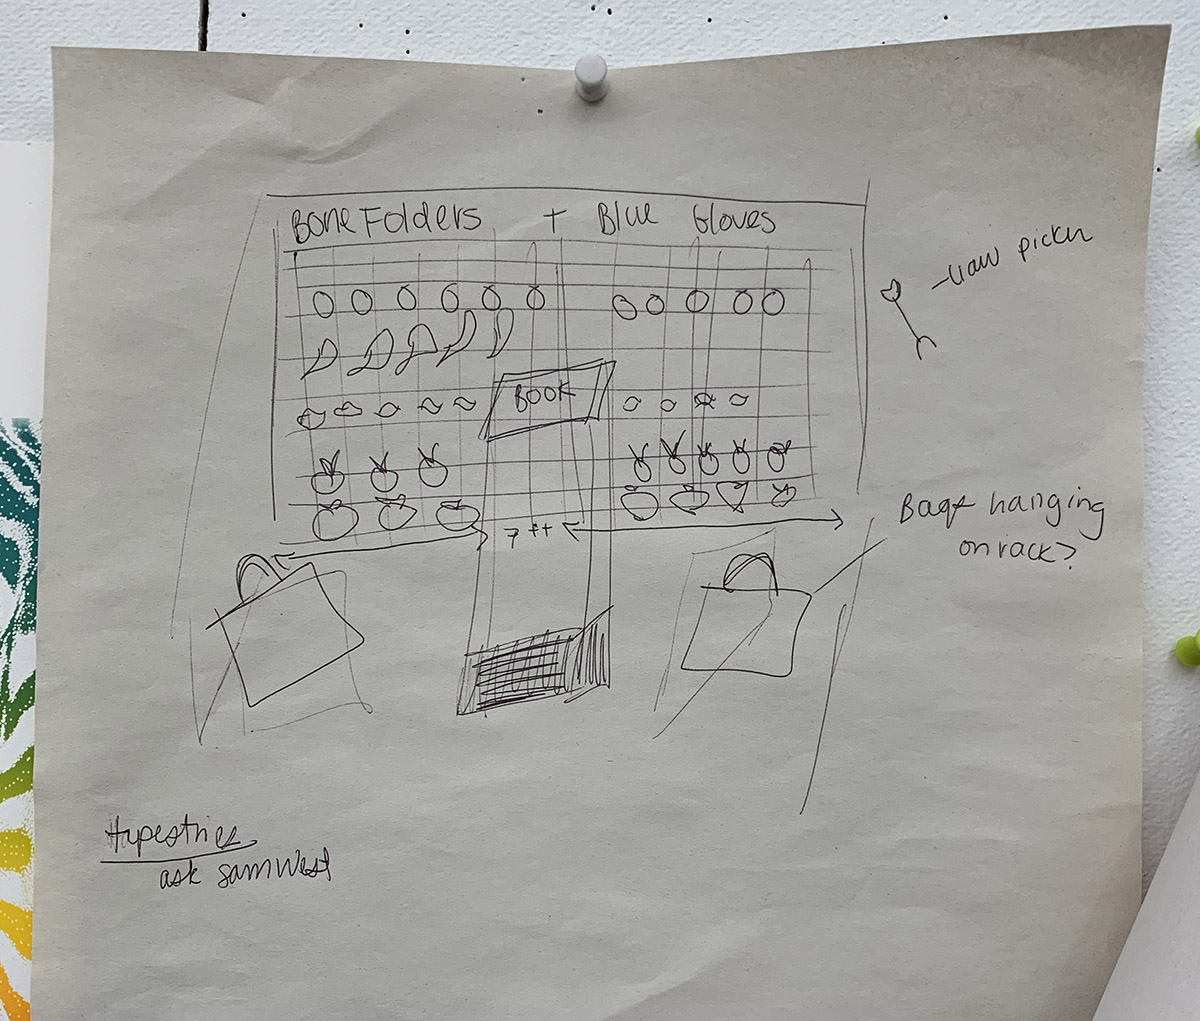 Bone Folders + Blue Gloves
picker
BOOK
7 ft
Bags hanging
on rack?
Tapestries
ask Sam West